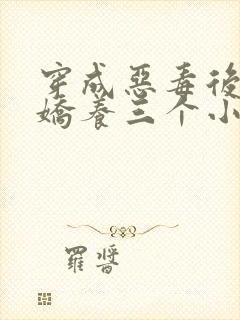 穿成惡毒後
嬌養三个小
羅醬